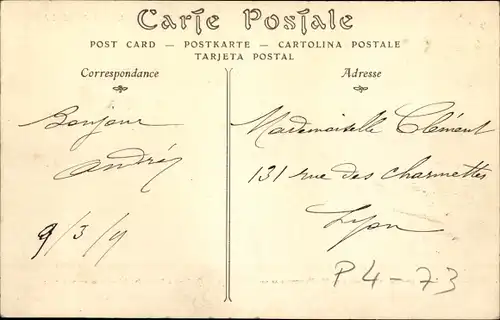 Carte Postale
POST CARD — POSTKARTE — CARTOLINA POSTALE
TARJETA POSTAL
Correspondance
Bonjour
André
9/3/9
Adresse
Mademoiselle Clément
131 rue des charmettes
Lyon
P4-73